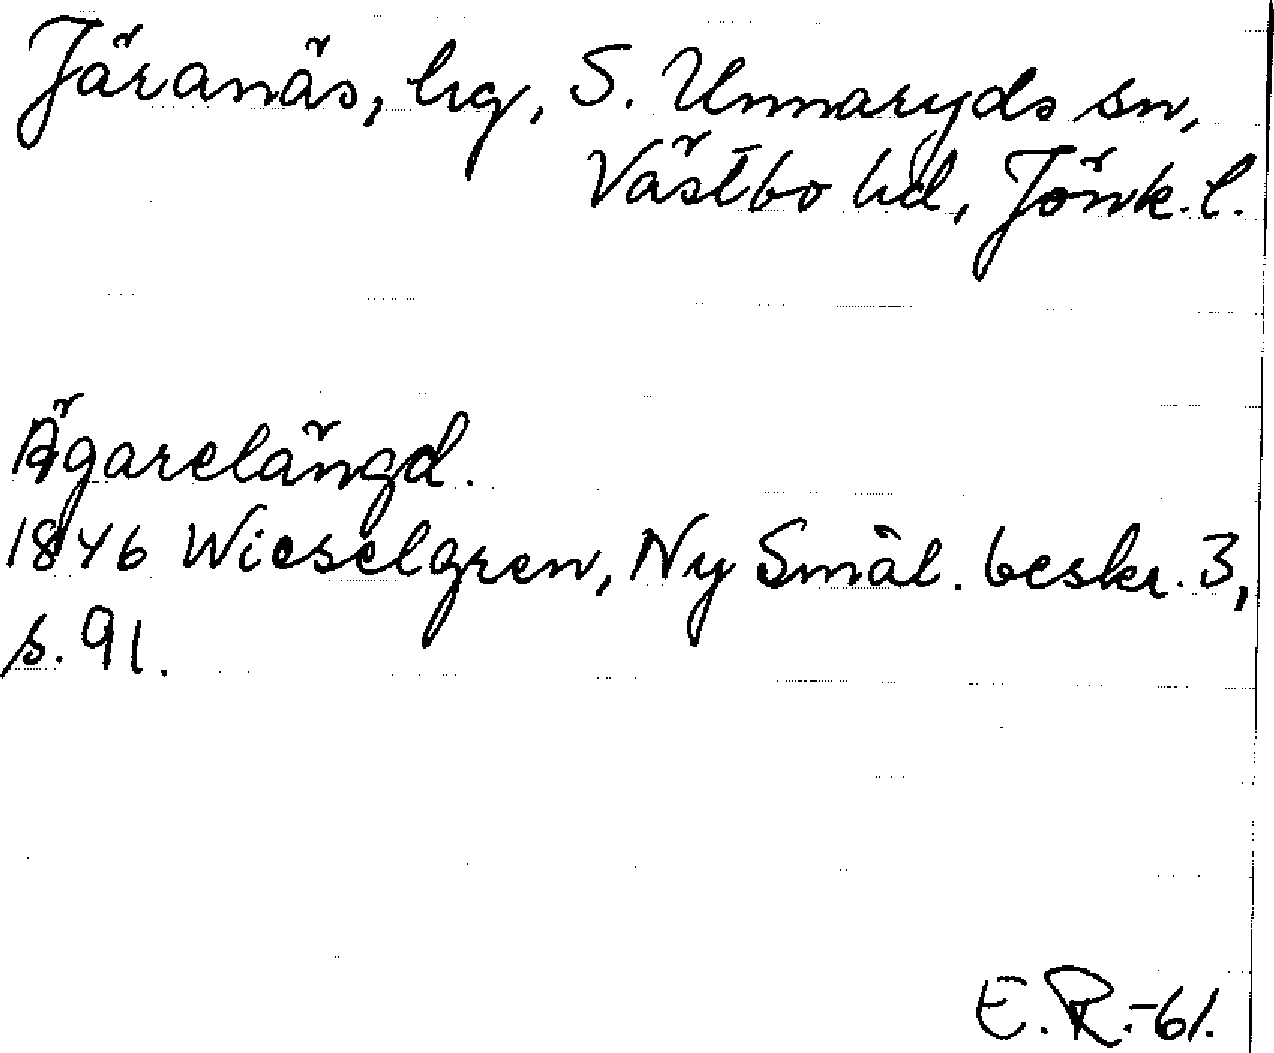 Järanäs, hg, S. Unnaryds sn,
Västbo hd, Jönk. l.
Ägarelängd.
1846 Wieselgren, Ny Smål. beskr. 3,
s. 91.
E. R. -61.